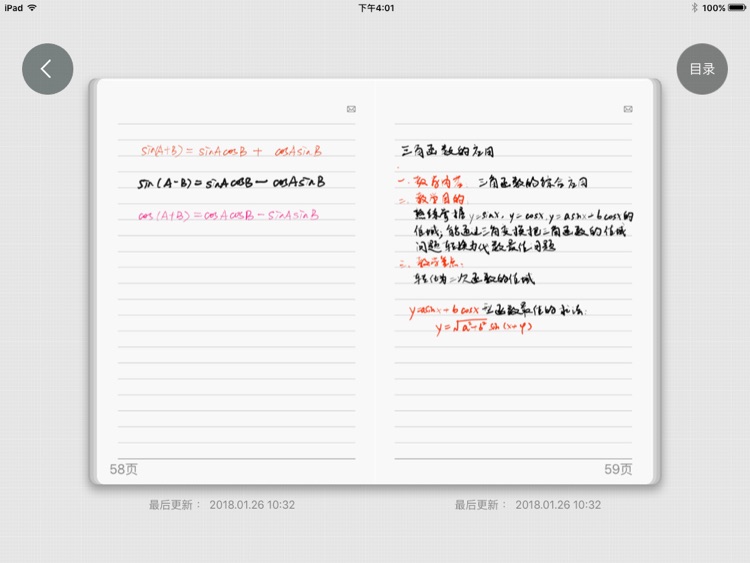 iPad 下午4:01 100%
目录
sin(A+B) = sinAcosB + cosAsinB
sin(A-B) = sinAcosB - cosAsinB
cos(A+B) = cosAcosB - sinAsinB
58页
最后更新： 2018.01.26 10:32
三角函数的应用
一、教学内容: 三角函数的综合应用
二、教学目的:
熟练掌握y=sinx, y=cosx, y=asinx+bcosx的
值域; 能通过三角变换把三角函数的值域
问题转换为代数最值问题
三、教学重点:
转化为二次函数的值域
y=asinx+bcosx型函数最值的求法:
y=√a²+b² sin(x+φ)
59页
最后更新： 2018.01.26 10:32